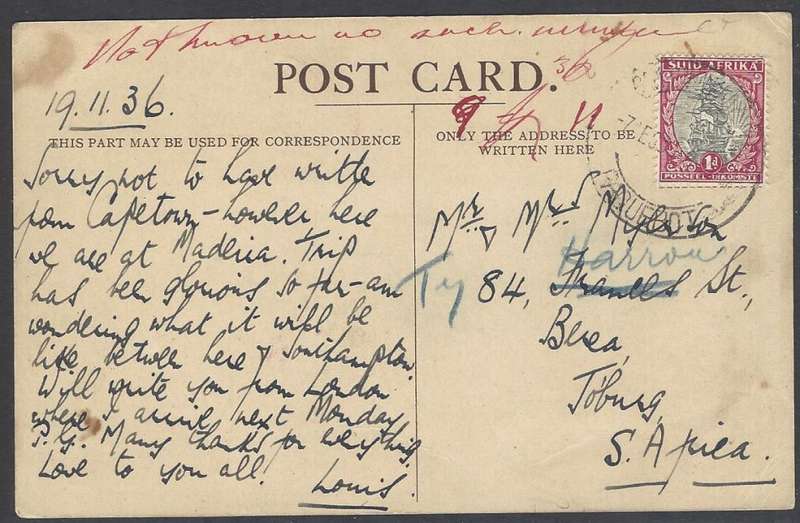 Not known as such
POST CARD.
36
SUID AFRIKA
1d
POSSEEL-INKOMSTE
PAQUEBOT
19.11.36.
9 11
THIS PART MAY BE USED FOR CORRESPONDENCE
ONLY THE ADDRESS TO BE
WRITTEN HERE
Sorry not to have written
from Capetown - however here
we are at Maderia. Trip
has been glorious so far - am
wondering what it will be
like between here & Southampton.
Will write you from London
where I arrive next Monday
P.G. Many thanks for everything.
Love to you all.
Louis.
Mr & Mrs
Try 84, Harrow St.,
Berea,
Joburg,
S. Africa.